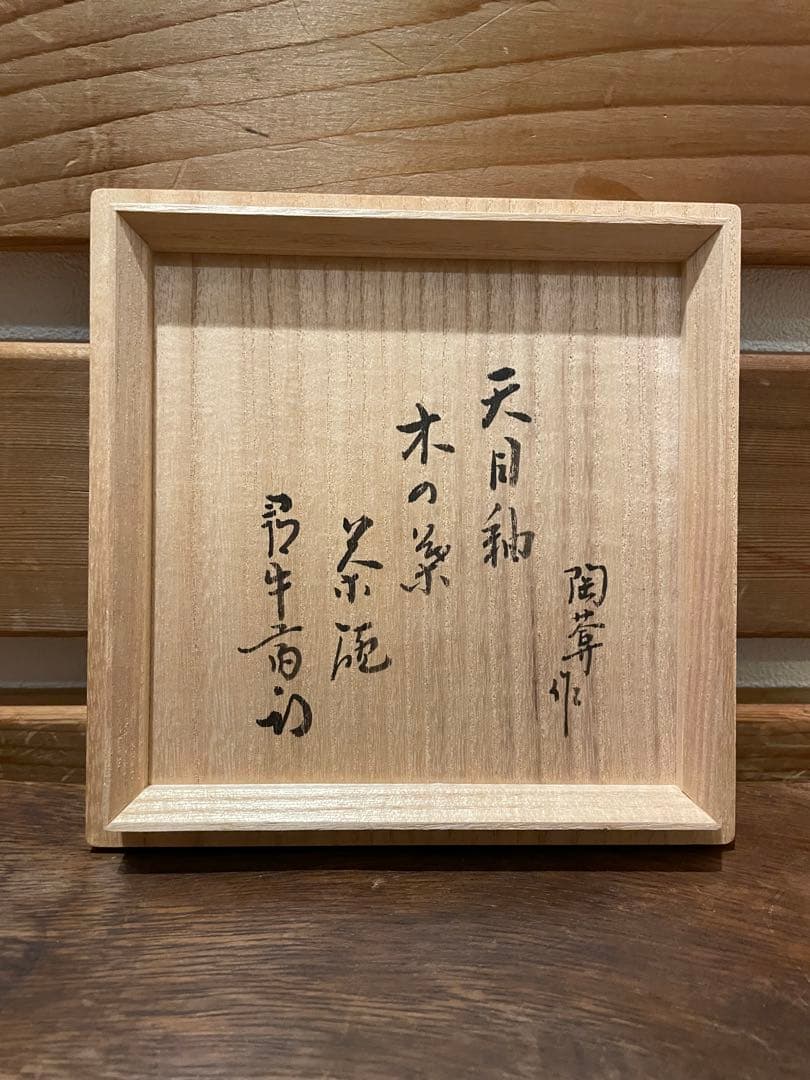 陶葊作
天目釉
木の葉
茶碗
尋牛斎